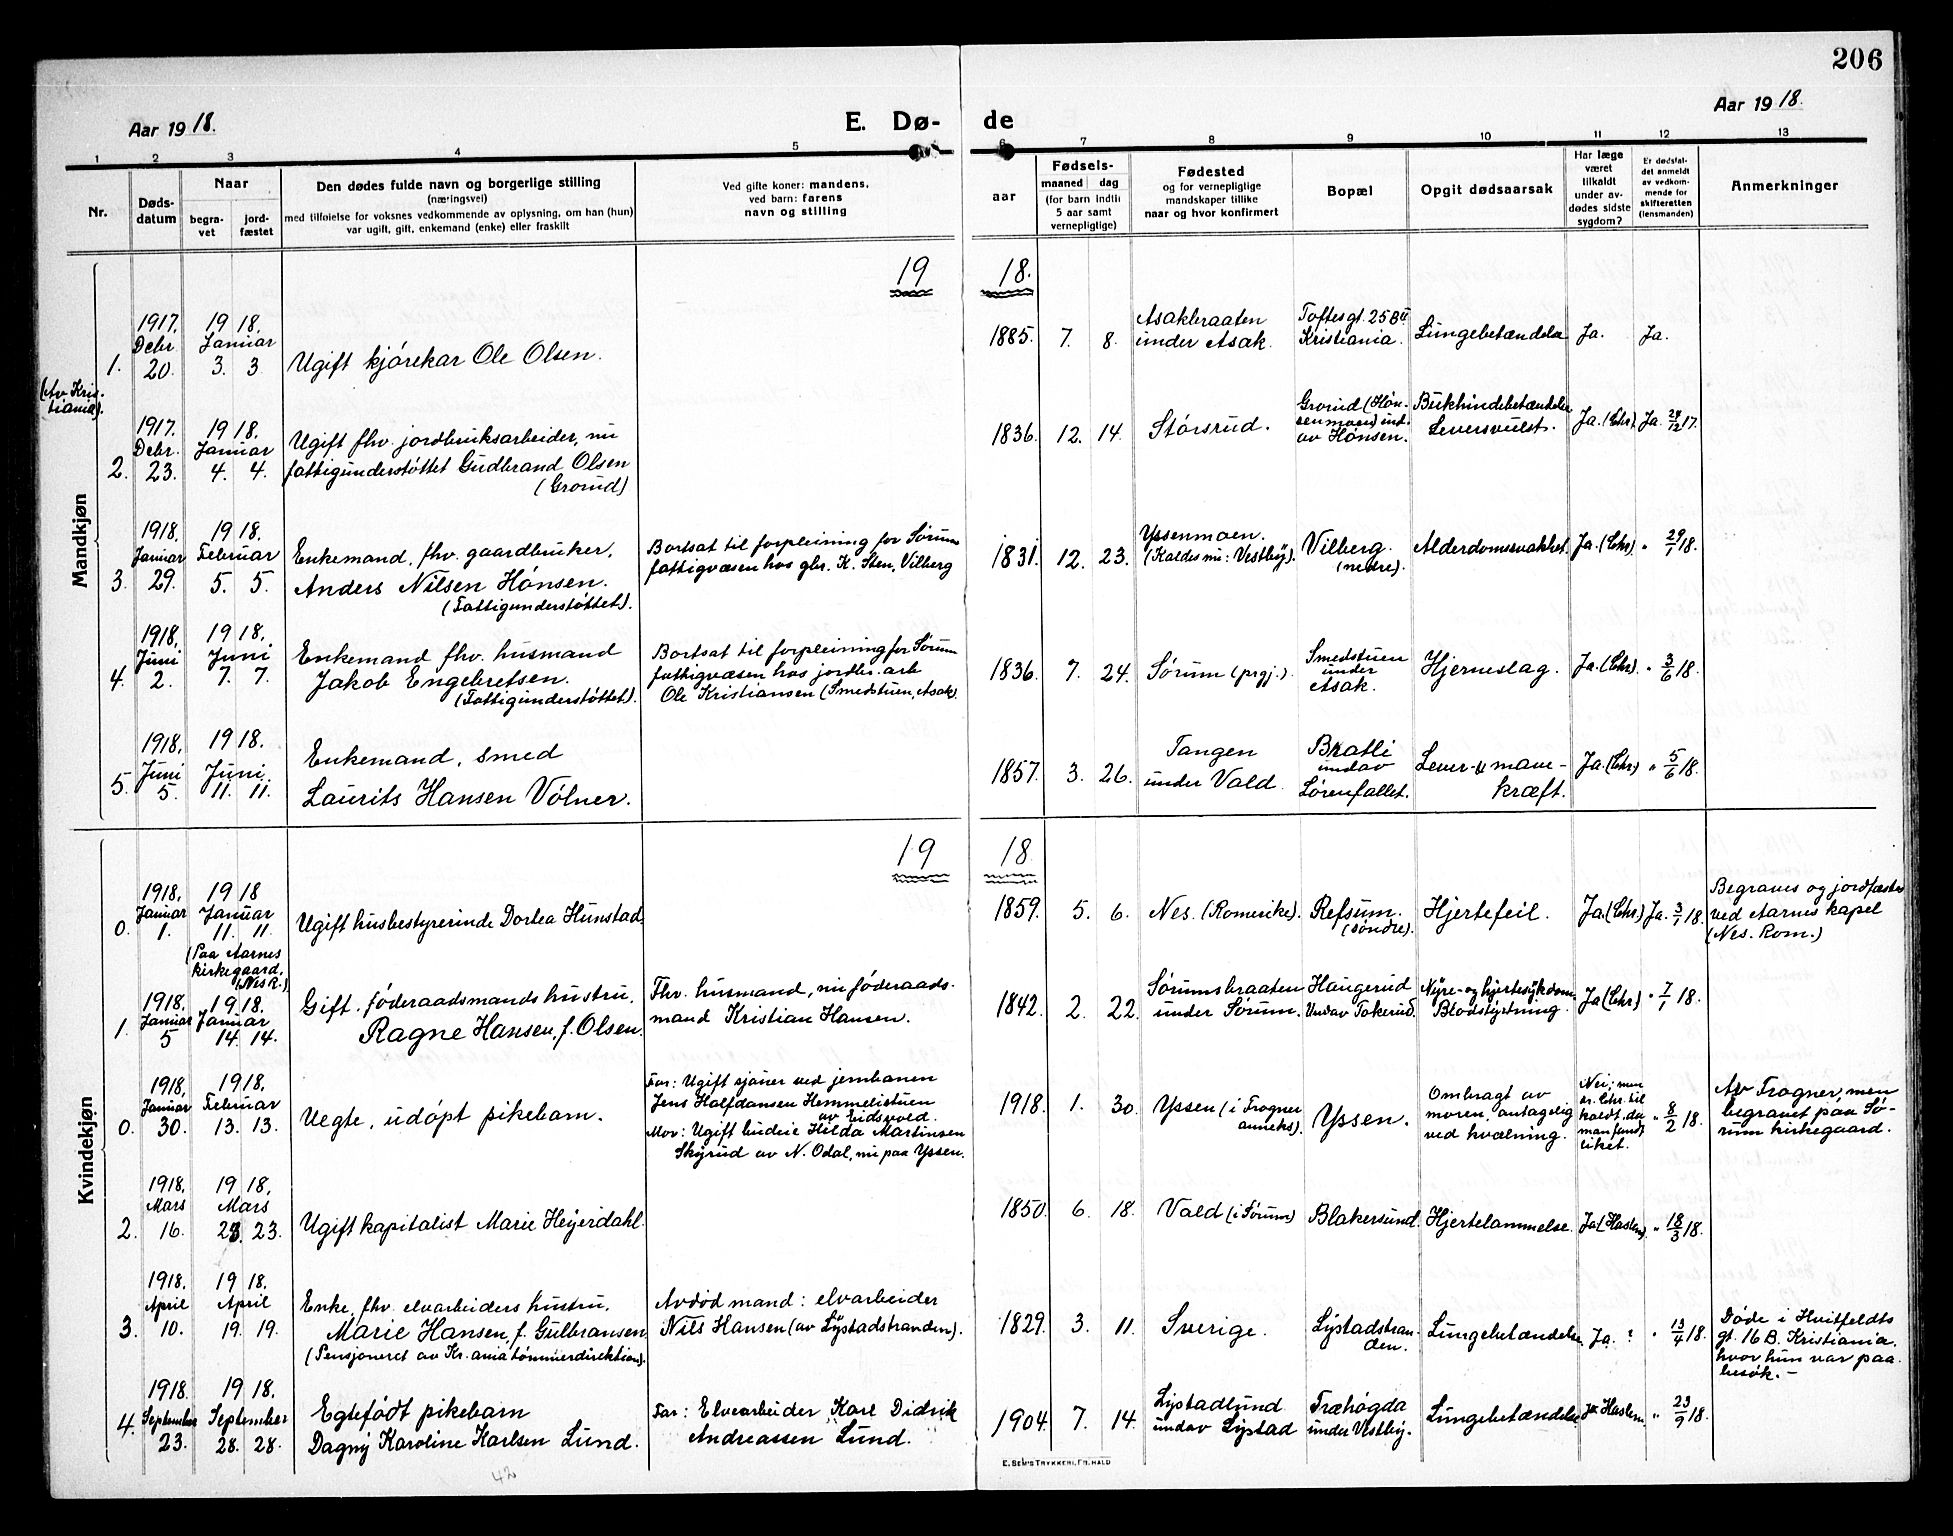 206
Aar 1918.
E. Dø-
de
Aar 1918.
1 2 3 4 5 6 7 8 9 10 11 12 13
Nr.
Døds-
datum
Naar
begra-
vet
jord-
fæstet
Den dødes fulde navn og borgerlige stilling
(næringsvei)
med tilføielse for voksnes vedkommende av oplysning, om han (hun)
var ugift, gift, enkemand (enke) eller fraskilt
Ved gifte koner: mandens,
ved barn: farens
navn og stilling
aar
Fødsels-
maaned dag
(for barn indtil
5 aar samt
vernepligtige)
Fødested
og for vernepligtige
mandskaper tillike
naar og hvor konfirmert
Bopæl
Opgit dødsaarsak
Har læge
været
tilkaldt
under av-
dødes sidste
sygdom?
Er dødsfal-
det anmeldt
av vedkom-
mende for
skifteretten
(lensmanden)
Anmerkninger
Mandkjøn
19 18.
1.
(Av Kris-
tiania).
1917.
Debr.
20.
19 18.
Januar
3. 3
Ugift kjørekar Ole Olsen.
1885. 7. 8.
Asakbraaten
under Asak.
Toftesgt. 25 B II
Kristiania.
Lungebetændelse
Ja.
Ja.
2.
1917.
Debr.
23.
19 18.
Januar
4. 4.
Ugift fhv. jordbruksarbeider, nu
fattigunderstøttet Gudbrand Olsen
(Grorud)
1836. 12. 14.
Størsrud.
Grorud (Høn-
senmoen) ind.
av Hønsen.
Bukhindebetændelse
Leversvulst.
Ja. (Chr).
Ja. 24/12 17.
3.
1918.
Januar
29.
19 18.
Februar
5. 5.
Enkemand, fhv. gaardbruker,
Anders Nilsen Hønsen.
(Fattigunderstøttet).
Bortsat til forpleining for Sørum
fattigvæsen hos gbr. K. Sten, Vilberg
1831. 12. 23.
Yssenmoen.
(Kaldes nu: Vestbÿ).
Vilberg.
(nedre).
Alderdomssvakhet.
Ja. (Chr)
" 29/1 18.
4.
1918.
Juni
2.
19 18.
Juni
7. 7.
Enkemand fhv. husmand
Jakob Engebretsen.
(Fattigunderstøttet).
Bortsat til forpleining for Sørum
fattigvæsen hos jordbr. arb
Ole Kristiansen (Smedstuen, Asak).
1836. 7. 24.
Sørum (prgj.).
Smedstuen
under
Asak.
Hjerneslag.
Ja. (Chr)
" 3/6 18.
5.
1918.
Juni
5.
19 18.
Juni
11. 11.
Enkemand, smed
Laurits Hansen Vølner.
1857. 3. 26.
Tangen
under Vald.
Bratli
undav
Lørenfallet.
Lever- & mave-
kræft.
Ja. (Chr)
" 5/6 18.
Kvindekjøn
19 18
0.
1918.
Januar
1.
19 18
Januar
11. 11.
(Paa Aarnes
kirkegaard,
(Nes R.)
Ugift husbestyrerinde Dortea Hunstad.
1859. 5. 6.
Nes. (Romerike).
Refsum.
(søndre).
Hjertefeil.
Ja. (Chr)
Ja. 3/1 18.
Begraves og jordfæstes
ved Aarnes kapel
(Nes. Rom.)
1.
1918.
Januar
5
19 18.
Januar
14. 14.
Gift. føderaadsmands hustru,
Ragne Hansen, f. Olsen.
Fhv. husmand, nu føderaads-
mand Kristian Hansen.
1842. 2. 22.
Sørumsbraaten
under Sørum.
Haugerud
Undav Tokerud.
Nyre- og hjertesykdom.
Blodstyrtning.
Ja (Chr)
" 7/1 18.
0.
1918.
Januar
30.
19 18.
Februar
13. 13.
Uegte, udøpt pikebarn.
Far: Ugift sjauer ved jernbanen
Jens Halfdansen Hemmelistuen
av Eidsvold.
Mor: Ugift budeie Hilda Martinsen
Skyrud av N. Odal, nu paa Yssen.
1918. 1. 30.
Yssen (i Frogner
anneks).
Yssen.
Ombragt av
moren, antagelig
ved kvælning.
Nei; men
dr. Chr. til
kaldt, da
man fandt
liket.
" 8/2 18.
Av Frogner, men
begravet paa Sø-
rum kirkegaard.
2.
1918.
Mars
16.
19 18.
Mars
23. 23.
Ugift kapitalist Marie Heyerdahl.
1850. 6. 18.
Vald (i Sørum)
Blakersund.
Hjertelammelse.
Ja (Haslem).
" 18/3 18.
3.
1918.
April
10.
19 18.
April
19. 19.
Enke, fhv. elvarbeiders hustru,
Marie Hansen, f. Gulbransen
(Pensjoneret av Kr.ania tømmerdirektion).
Avdød mand: elvarbeider
Nils Hansen (av Lÿstadstranden).
1829. 3. 11.
Sverige.
Lystadstran-
den.
Lungebetændelse
Ja. ?
" 13/4 18.
Døde i Huitfeldts
gt. 16 B. Kristiania,
hvor hun var paa
besøk. -
4.
1918.
September
23.
19 18.
September
28. 28.
Egtefødt pikebarn
Dagny Karoline Karlsen Lund.
Far: Elvearbeider Karl Didrik
Andreassen Lund.
1904. 7. 14.
Lystadlund
undav Lystad
Træhøgda
under Vestby.
Lungebetændelse
Ja Haslem.
" 23/9 18.
42
E. SEM'S TRYKKERI, FR.HALD